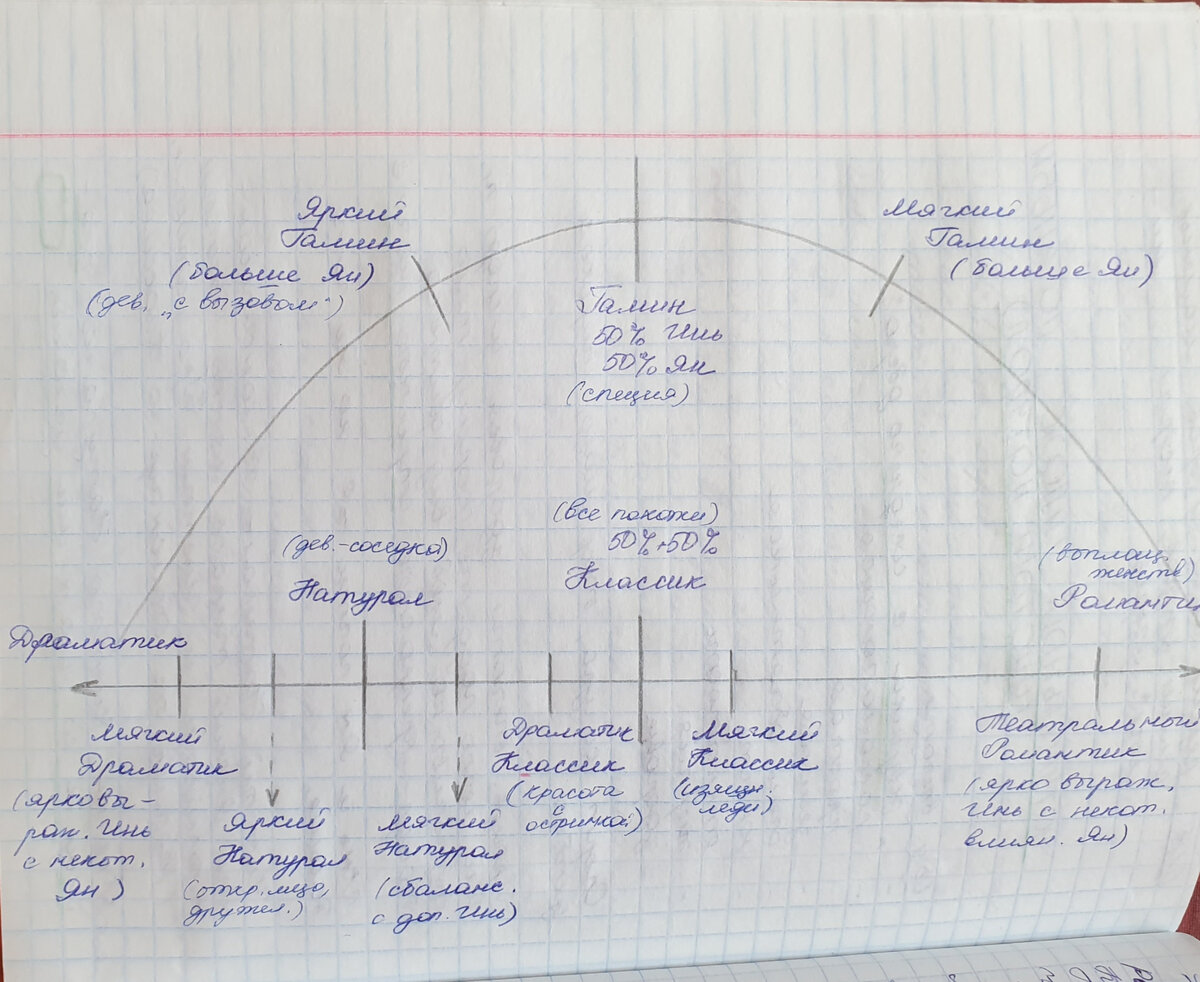 Яркий
Гамин
(больше Ян)
(дев. „с вызовом")
Мягкий
Гамин
(больше Ян)
Гамин
50% Инь
50% Ян
(специя)
(дев.-соседка)
Натурал
(все похожи)
50%+50%
Классик
(воплощ.
женств)
Романти
Драматик
Мягкий
Драматик
(ярковы-
раж. Инь
с некот.
Ян)
Яркий
Натурал
(откр. лицо,
дружел.)
Мягкий
Натурал
(сбаланс.
с доп. Инь)
Драматик
Классик
(красота
с
остринкой)
Мягкий
Классик
(изящн.
леди)
Театральный
Романтик
(ярко выраж.
Инь с некот.
влиян. Ян)